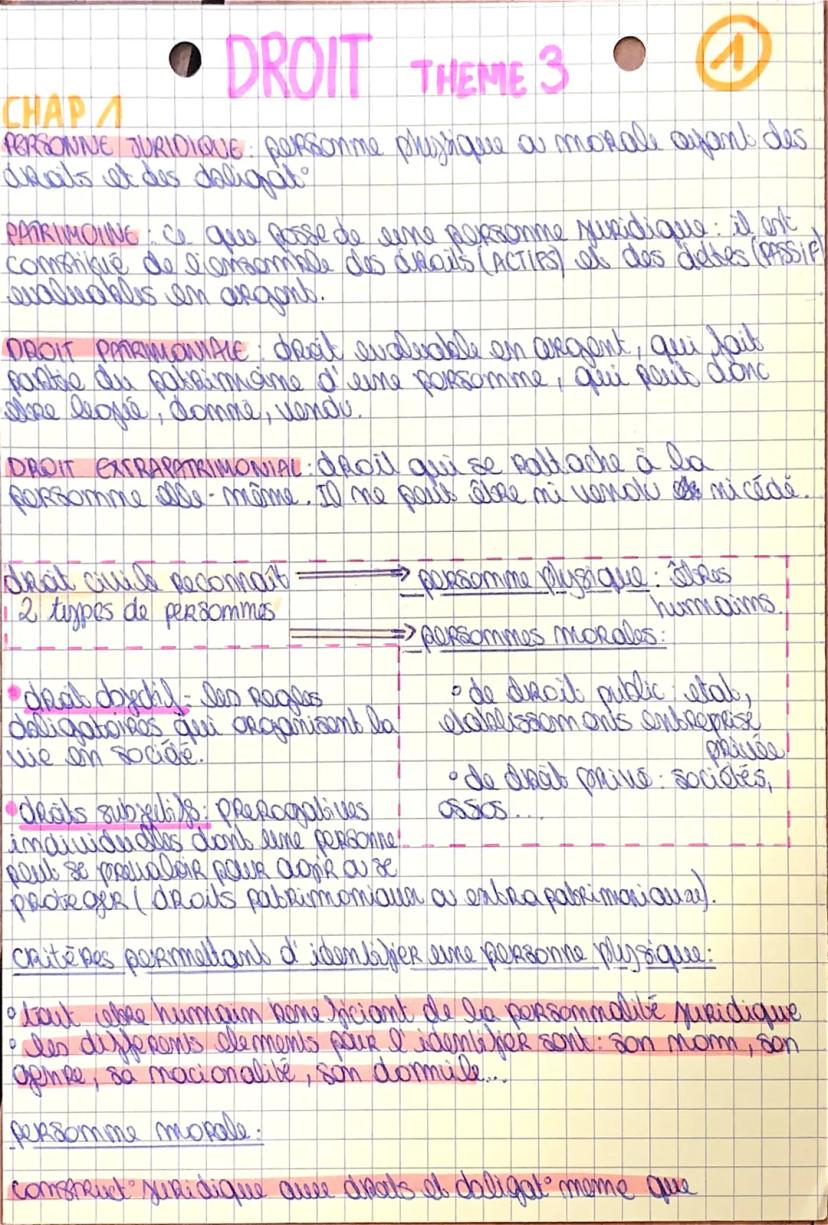 DROIT THEME 3
1
CHAP 1
PERSONNE JURIDIQUE : personne physique ou morale ayant des
droits et des obligat°
PATRIMOINE : ce que possede une personne juridique : il est
constitué de l'ensemble des droits (ACTIFS) et des dettes (PASSIF)
evaluables en argent.
DROIT PATRIMONIALE : droit evaluable en argent, qui fait
partie du patrimoine d'une personne, qui peut donc
être legué, donné, vendu.
DROIT EXTRAPATRIMONIAL : droit qui se rattache à la
personne elle-même. Il ne peut être ni vendu ni cédé.
droit civile reconnait ⟹ personne physique : êtres
2 types de personnes humains.
⟹ personnes morales :
• droit objectif - les regles
obligatoires qui organisent la
vie en société.
• droits subjectifs : prerogatives
individuelles dont une personne
peut se prevaloir pour agir ou se
proteger (droits patrimoniaux ou extrapatrimoniaux).
° de droit public : etat,
etablissements entreprise
privée
° de droit privé : sociétés,
assos...
critères permettant d'identifier une personne physique :
° tout etre humain beneficiant de la personnalité juridique
° les differents elements pour l'identifier sont : son nom, son
genre, sa nacionalité, son domicile...
personne morale :
construct° juridique avec droits et obligat° meme que